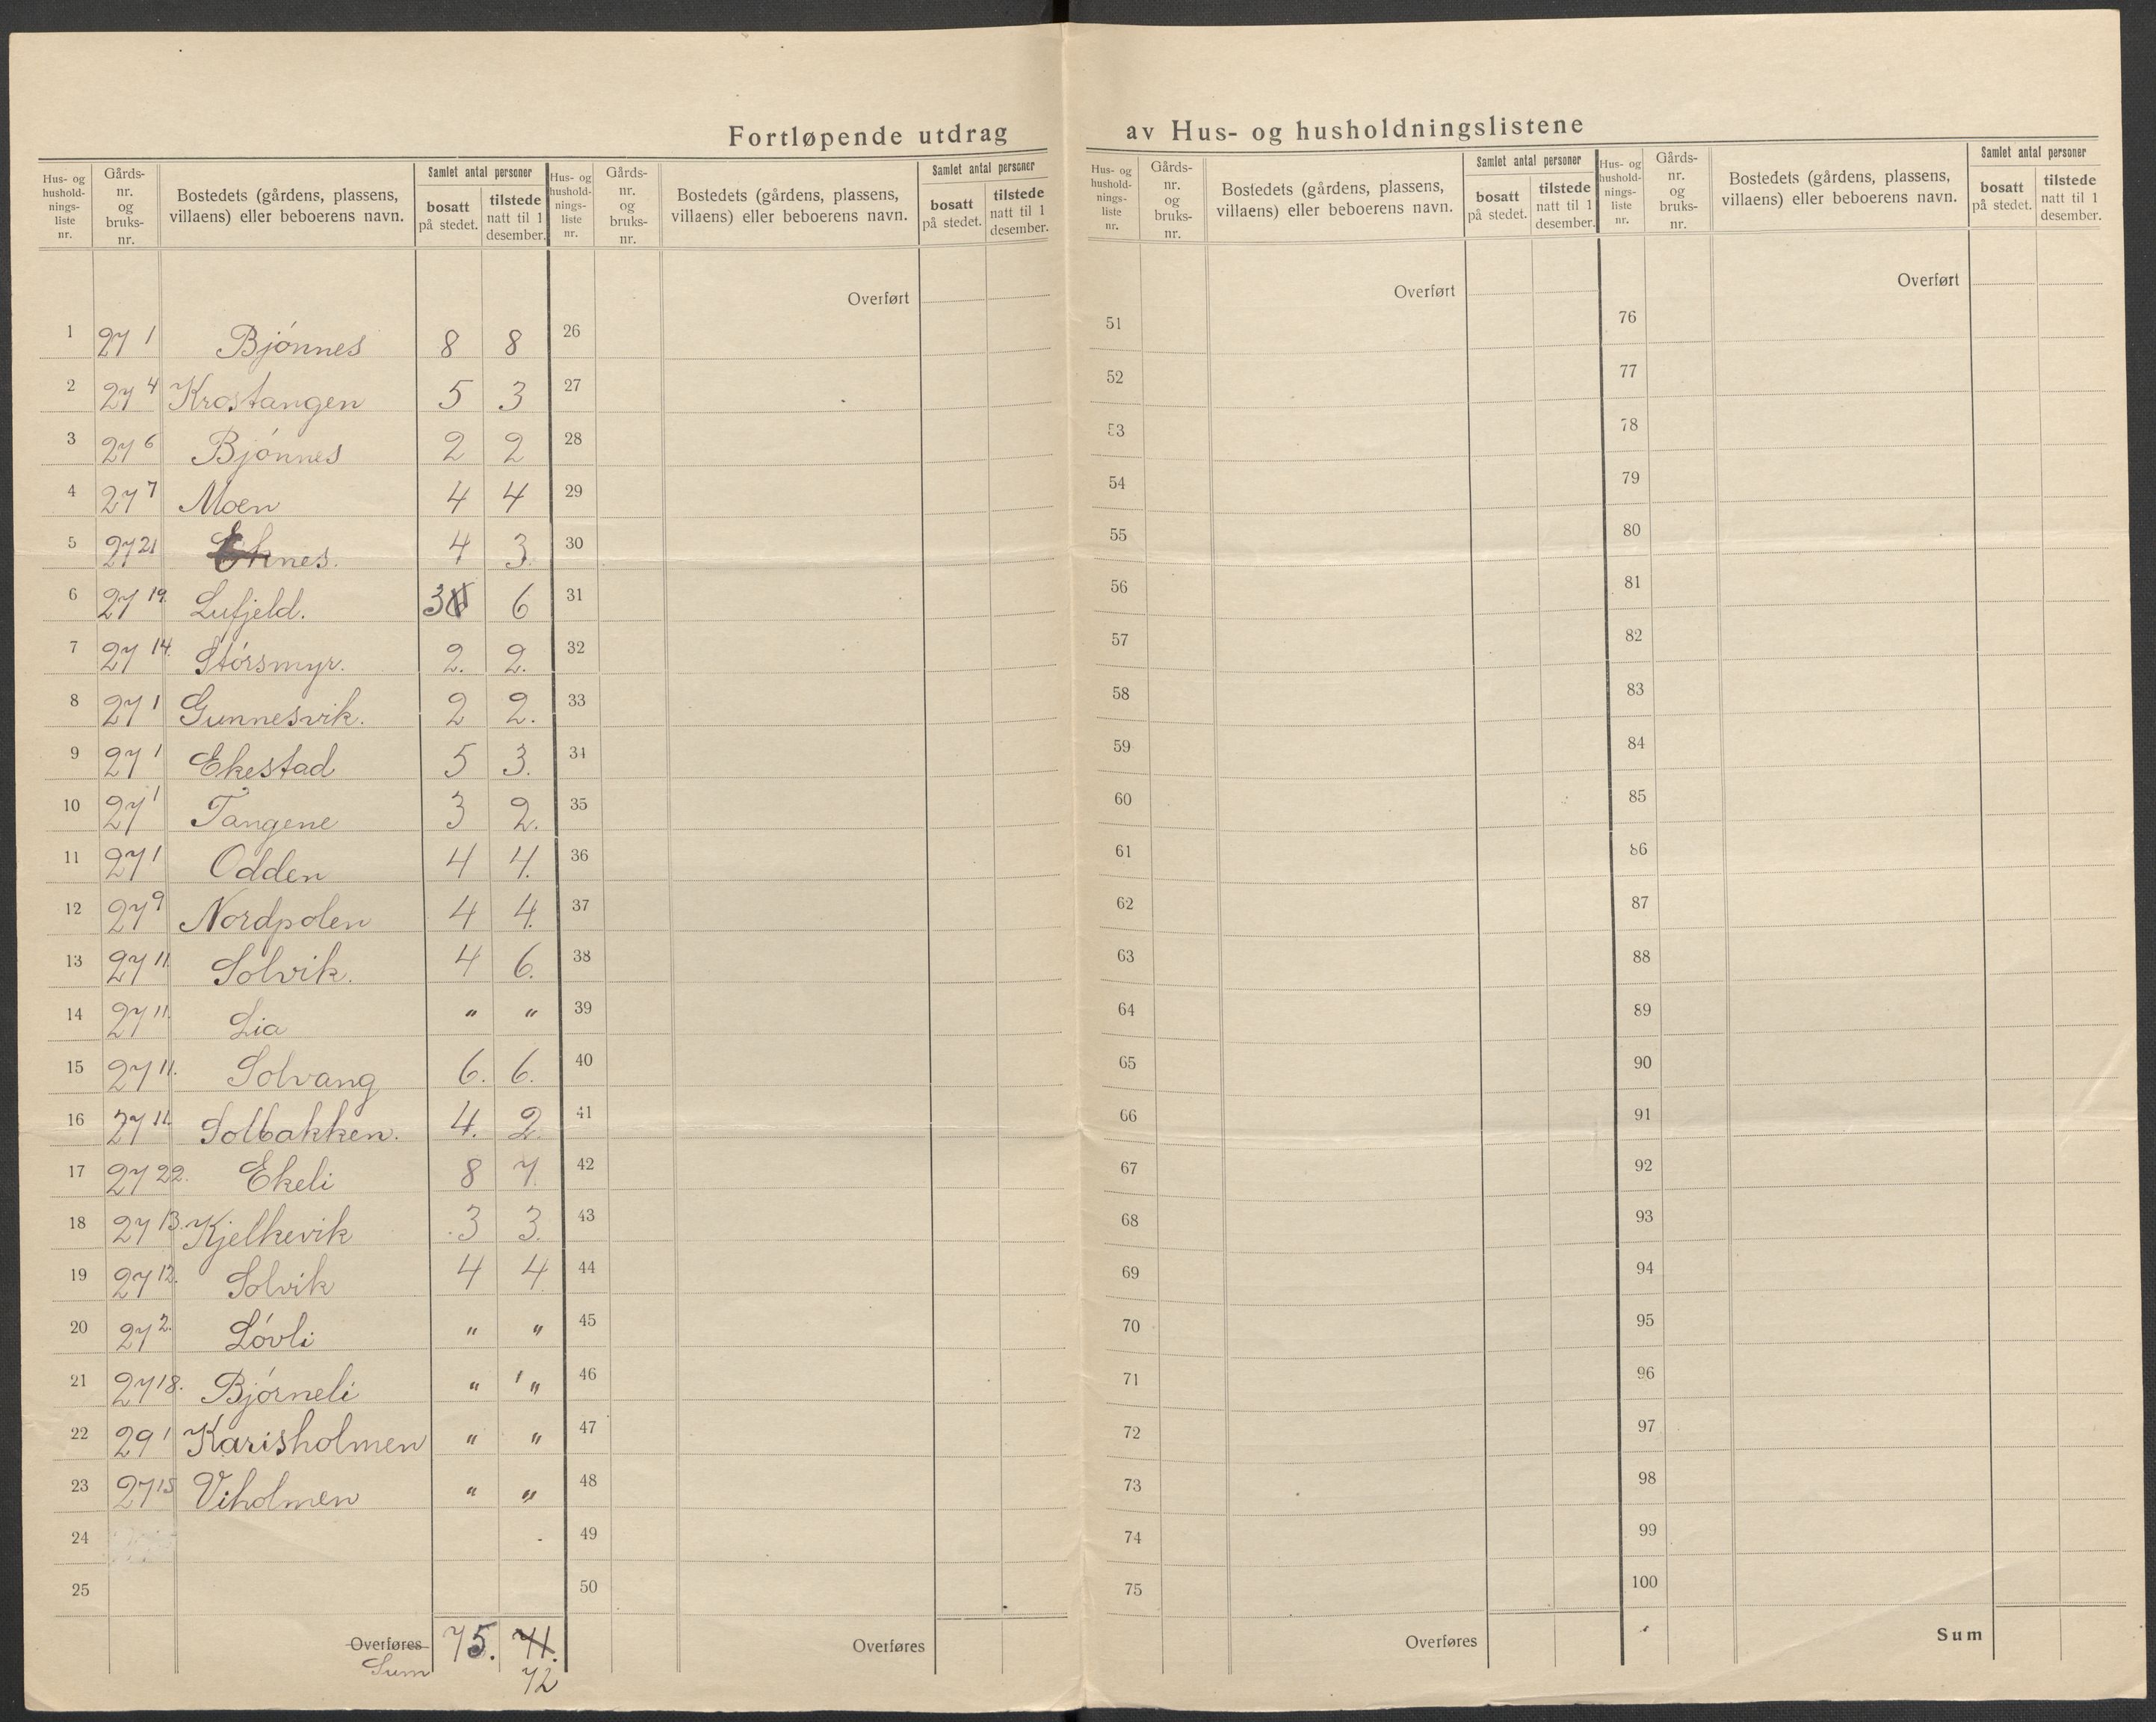 Fortløpende utdrag av Hus- og husholdningslistene
Hus- og hushold- nings- liste nr.
Gårds- nr. og bruks- nr.
Bostedets (gårdens, plassens, villaens) eller beboerens navn.
Samlet antal personer
bosatt på stedet.
tilstede natt til 1 desember.
Hus- og hushold- nings- liste nr.
Gårds- nr. og bruks- nr.
Bostedets (gårdens, plassens, villaens) eller beboerens navn.
Samlet antal personer
bosatt på stedet.
tilstede natt til 1 desember.
Hus- og hushold- nings- liste nr.
Gårds- nr. og bruks- nr.
Bostedets (gårdens, plassens, villaens) eller beboerens navn.
Samlet antal personer
bosatt på stedet.
tilstede natt til 1 desember.
Hus- og hushold- nings- liste nr.
Gårds- nr. og bruks- nr.
Bostedets (gårdens, plassens, villaens) eller beboerens navn.
Samlet antal personer
bosatt på stedet.
tilstede natt til 1 desember.
Overført Overført Overført
1 27 1 Bjónnes 8 8 26 51 76
2 27 4 Krostangen 5 3 27 52 77
3 27 6 Bjónnes 2 2 28 53 78
4 27 7 Moen 4 4 29 54 79
5 27 21 Eknes. 4 3. 30 55 80
6 27 19. Lufjeld. 3 6 31 56 81
7 27 14. Stórsmyr. 2. 2. 32 57 82
8 27 1 Gunnesvik. 2 2. 33 58 83
9 27 1 Ekestad 5 3. 34 59 84
10 27 1 Tangene 3 2. 35 60 85
11 27 1 Odden 4 4. 36 61 86
12 27 9 Nordpolen 4 4. 37 62 87
13 27 11. Solvik. 4 6. 38 63 88
14 27 11. Lia " " 39 64 89
15 27 11. Solvang 6. 6. 40 65 90
16 27 11. Solbakken. 4. 2. 41 66 91
17 27 22. Ekeli 8 7. 42 67 92
18 27 13. Kjelkevik 3 3. 43 68 93
19 27 12. Solvik 4 4 44 69 94
20 27 2. Lóvli " " 45 70 95
21 27 18. Bjórneli " " 46 71 96
22 29 1 Karisholmen " " 47 72 97
23 27 15 Viholmen " " 48 73 98
24 49 74 99
25 50 75 100
Overføres 75. 71. Overføres Overføres Sum
Sum 72